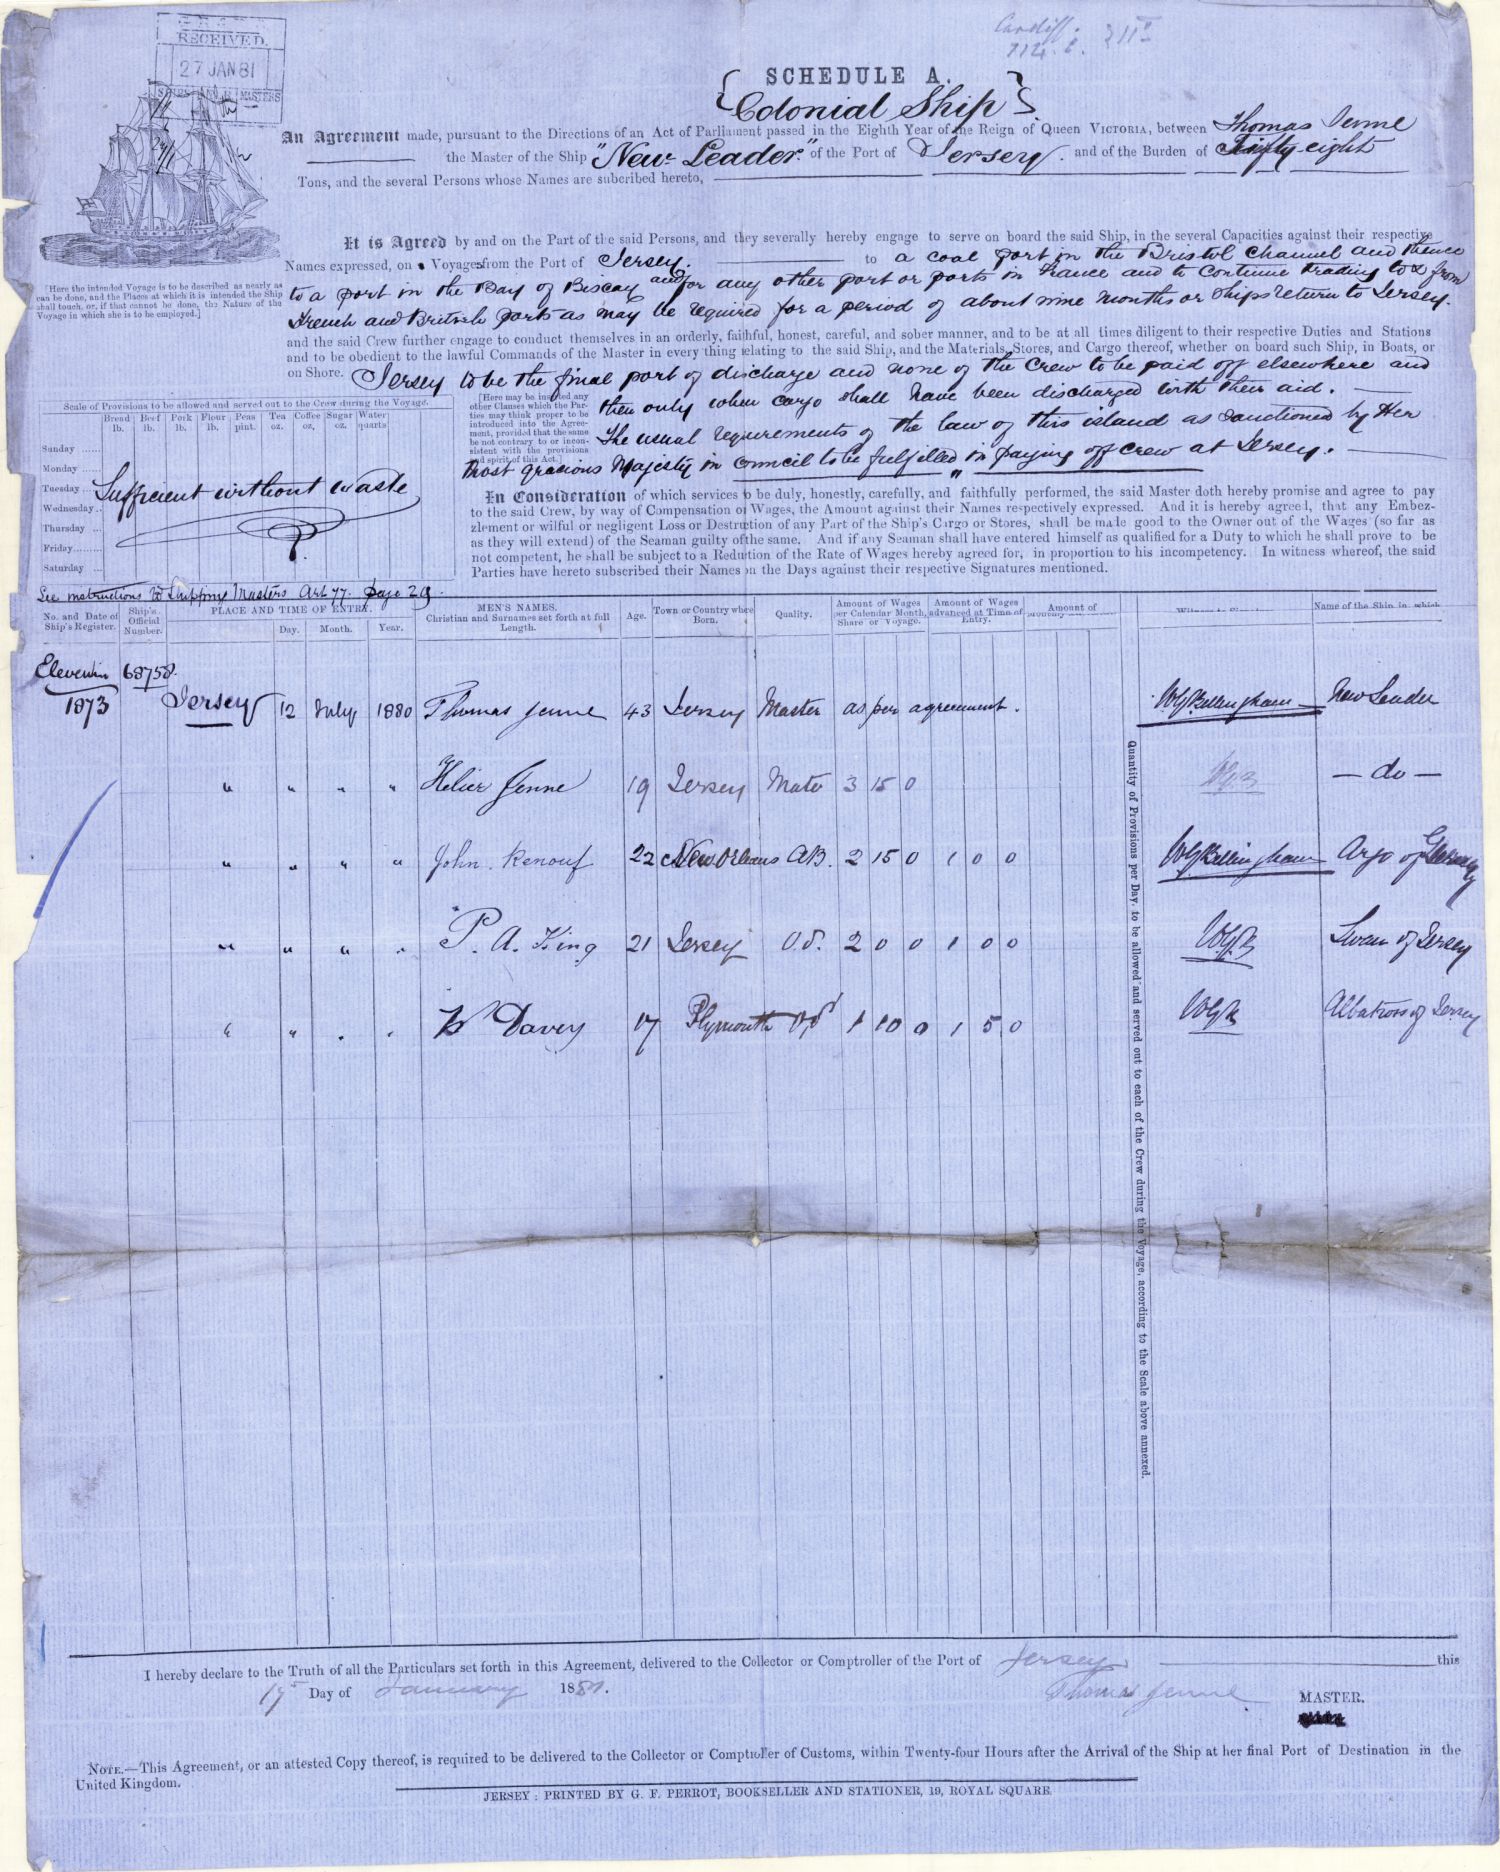 RECEIVED.
27 JAN 81
Cardiff.
SCHEDULE A.
Colonial Ship
An Agreement made, pursuant to the Directions of an Act of Parliament passed in the Eighth Year of the Reign of Queen VICTORIA, between Thomas Jenne
the Master of the Ship "New Leader" of the Port of Jersey. and of the Burden of Fifty eight
Tons, and the several Persons whose Names are subcribed hereto,
It is Agreed by and on the Part of the said Persons, and they severally hereby engage to serve on board the said Ship, in the several Capacities against their respective
Names expressed, on Voyages from the Port of Jersey. to a coal port in the Bristol Channel and thence
to a port in the Bay of Biscay and/or any other port or ports in France and to continue trading to & from
French and British ports as may be required for a period of about nine months or ships return to Jersey.
[Here the intended Voyage is to be described as nearly as
can be done, and the Places at which it is intended the Ship
shall touch, or, if that cannot be done, the Nature of the
Voyage in which she is to be employed.]
and the said Crew further engage to conduct themselves in an orderly, faithful, honest, careful, and sober manner, and to be at all times diligent to their respective Duties and Stations
and to be obedient to the lawful Commands of the Master in every thing relating to the said Ship, and the Materials, Stores, and Cargo thereof, whether on board such Ship, in Boats, or
on Shore. Jersey to be the final port of discharge and none of the Crew to be paid off elsewhere and
then only when cargo shall have been discharged with their aid.
The usual requirements of the law of this island as sanctioned by Her
most gracious Majesty in council to be fulfilled in paying off crew at Jersey.
[Here may be inserted any
other Clauses which the Par-
ties may think proper to be
introduced into the Agree-
ment, provided that the same
be not contrary to or incon-
sistent with the provisions
and spirit of this Act.]
Scale of Provisions to be allowed and served out to the Crew during the Voyage.
Bread lb. Beef lb. Pork lb. Flour lb. Peas pint. Tea oz. Coffee oz. Sugar oz. Water quarts
Sunday ......
Monday ......
Tuesday ...
Wednesday ..
Thursday ...
Friday........
Saturday ...
Sufficient without waste
In Consideration of which services to be duly, honestly, carefully, and faithfully performed, the said Master doth hereby promise and agree to pay
to the said Crew, by way of Compensation or Wages, the Amount against their Names respectively expressed. And it is hereby agreed, that any Embez-
zlement or wilful or negligent Loss or Destruction of any Part of the Ship's Cargo or Stores, shall be made good to the Owner out of the Wages (so far as
as they will extend) of the Seaman guilty of the same. And if any Seaman shall have entered himself as qualified for a Duty to which he shall prove to be
not competent, he shall be subject to a Reduction of the Rate of Wages hereby agreed for, in proportion to his incompetency. In witness whereof, the said
Parties have hereto subscribed their Names on the Days against their respective Signatures mentioned.
See instructions to Shipping Masters Art 77. page 29.
No. and Date of Ship's Register. Ship's Official Number. PLACE AND TIME OF ENTRY. Day. Month. Year. MEN'S NAMES. Christian and Surnames set forth at full Length. Age. Town or Country where Born. Quality. Amount of Wages per Calendar Month, Share or Voyage. Amount of Wages advanced at Time of Entry. Amount of Name of the Ship in which
Eleven/in 1873 68758. Jersey 12 July 1880 Thomas Jenne 43 Jersey Master as per agreement. WGBellingham New Leader
" " " " Helier Jenne 19 Jersey Mate 3 15 0 WGB — do —
" " " " John Renouf 22 New Orleans AB. 2 15 0 1 0 0 WGBellingham Argo of Guernsey
" " " " P. A. King 21 Jersey O.S. 2 0 0 1 0 0 WGB Swan of Jersey
" " " " W Davey 17 Plymouth O.S. 1 10 0 1 5 0 WGB Albatross of Jersey
Quantity of Provisions per Day, to be allowed and served out to each of the Crew during the Voyage, according to the Scale above annexed.
I hereby declare to the Truth of all the Particulars set forth in this Agreement, delivered to the Collector or Comptroller of the Port of Jersey this
17th Day of January 1881. Thomas Jenne MASTER.
NOTE.—This Agreement, or an attested Copy thereof, is required to be delivered to the Collector or Comptroller of Customs, within Twenty-four Hours after the Arrival of the Ship at her final Port of Destination in the
United Kingdom.
JERSEY: PRINTED BY G. F. PERROT, BOOKSELLER AND STATIONER, 19, ROYAL SQUARE.